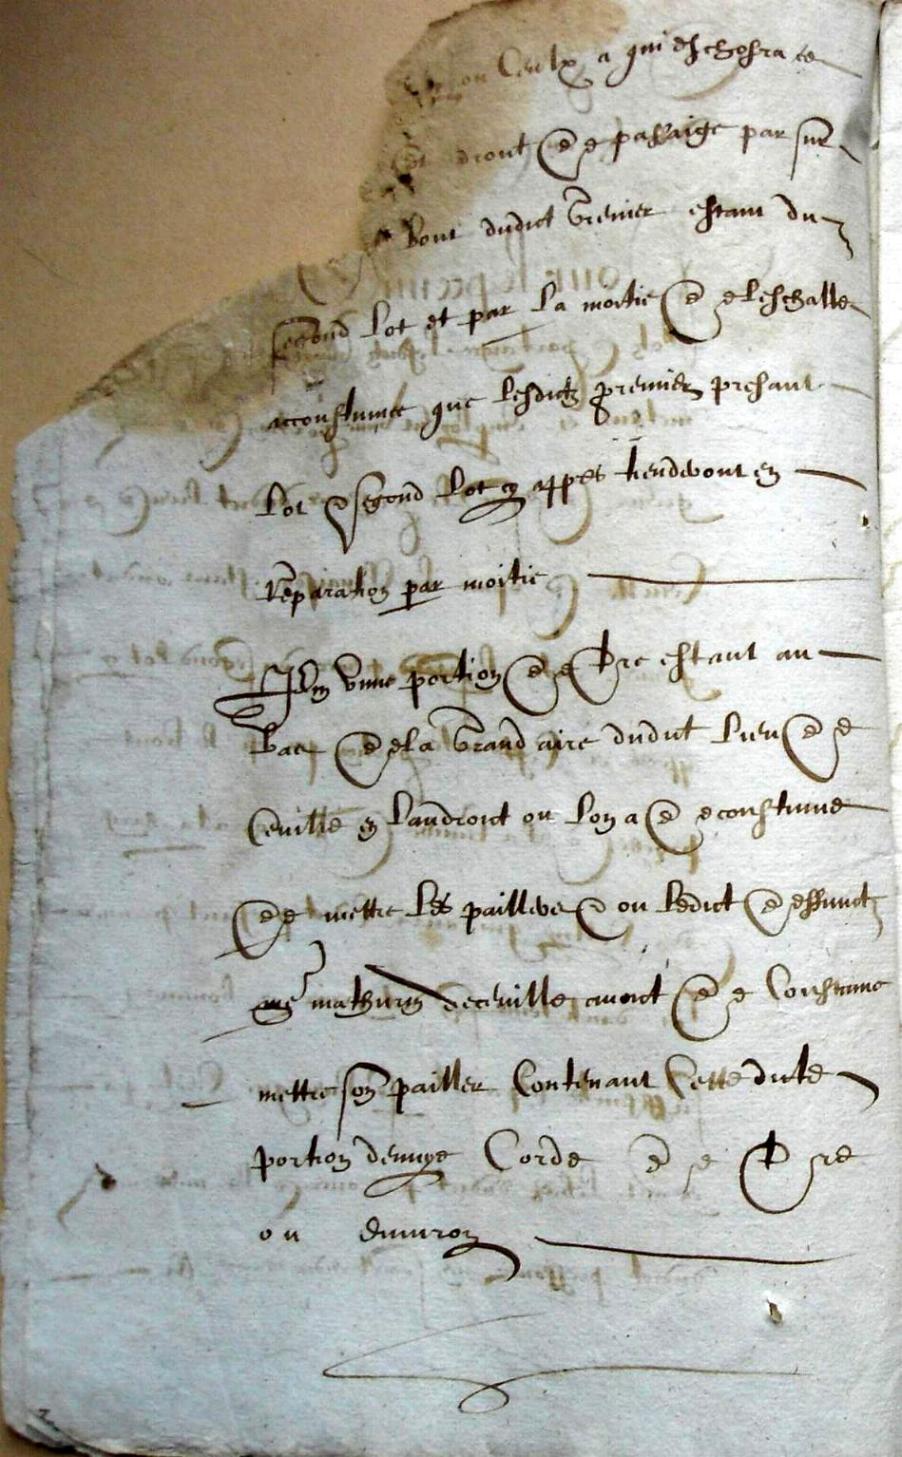 ou ceulx a qui eschoira ce
droict de passaige par sur
bout dudict grenier estant du
segond lot et par la moitie de leschalle
acconstumee que lesdictz premier presant
lot & segond lot cy appes tiendront en
reparation par moitie
Item vnne portion de terre estant au
bas de la grand aire dudict lieu de
Ceuille en landroict ou lon a de coustume
de mettre les pailles & ou ledict deffunct
me mathurin deceuille avoict de coustume
mettre son pailler contenant cette dicte
portion demye corde de terre
ou enuiron